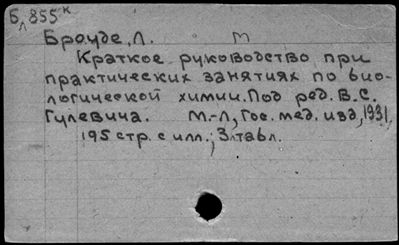 Б 855к
Л
Броуде, Л. М
Краткое руководство при
практических занятиях по био-
логической химии. Под ред. В. С.
Гулевича. М.-Л, Гос. мед. изд, 1931,
195 стр. с илл.; 3 табл.